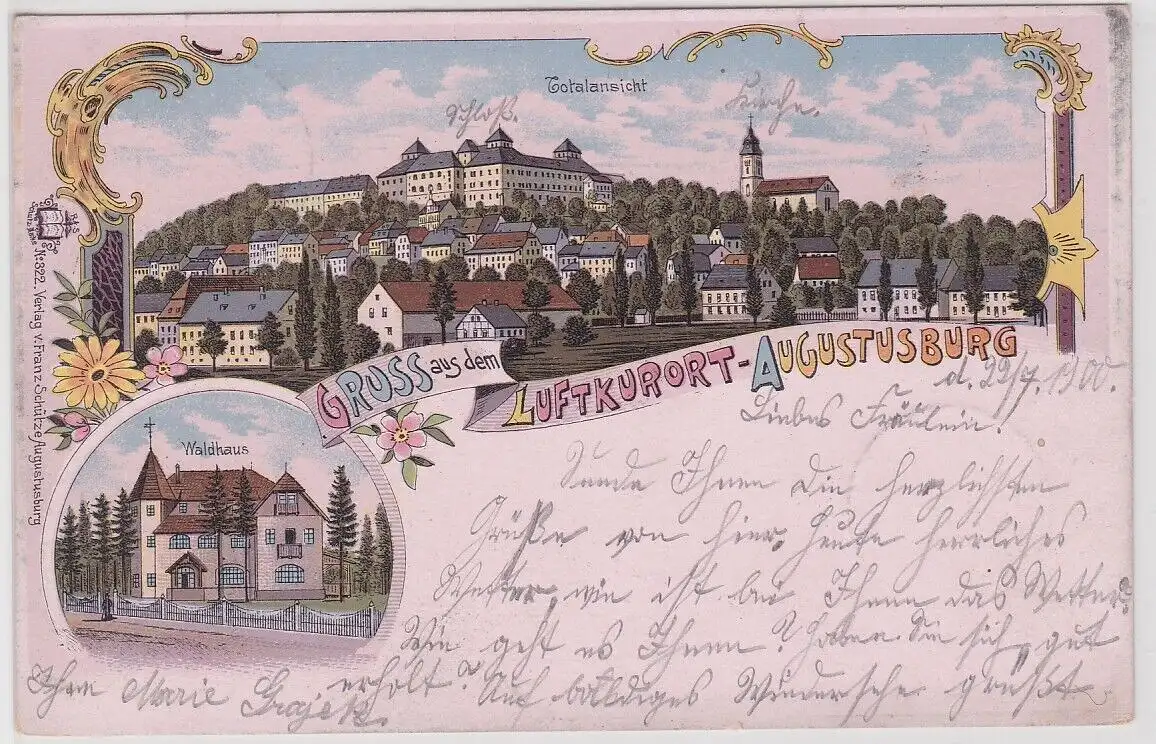 Totalansicht
Schloß.
Kirche.
No 322. Verlag v. Franz Schütze Augustusburg
GRUSS aus dem
LUFTKURORT-AUGUSTUSBURG
Waldhaus
d. 22/7. 1900.
Liebes Fräulein!
Sende Ihnen die herzlichsten
Grüße von hier, heute herrliches
Wetter, wie ist bei Ihnen das Wetter?
Wie geht es Ihnen? Haben Sie sich gut
erholt? Auf baldiges Wiedersehn grüßt
Ihre Marie